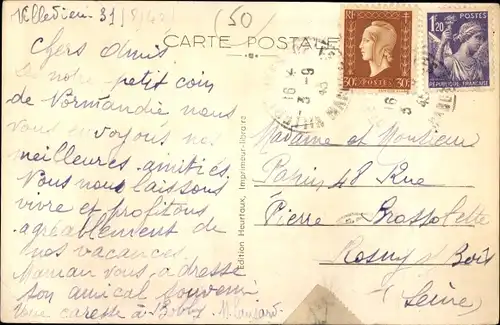 Villedieu 31/8/45
(50
CARTE POSTALE
Chers Amis
De notre petit coin
de Normandie nous
vous envoyons nos
meilleures amitiés.
Vous nous laissons
vivre et profitons
agréablement de
nos vacances.
Maman vous adresse
son amical souvenir
Une caresse à Bobby
Edition Heurtaux, Imprimeur-libraire
RF
30c
POSTES
1F20
REPUBLIQUE FRANÇAISE
16
3-9
45
16
3
45
MANCHE
Madame et Monsieur
48 Rue
Pierre Brossolette
Rosny s/ Bois
(Seine)